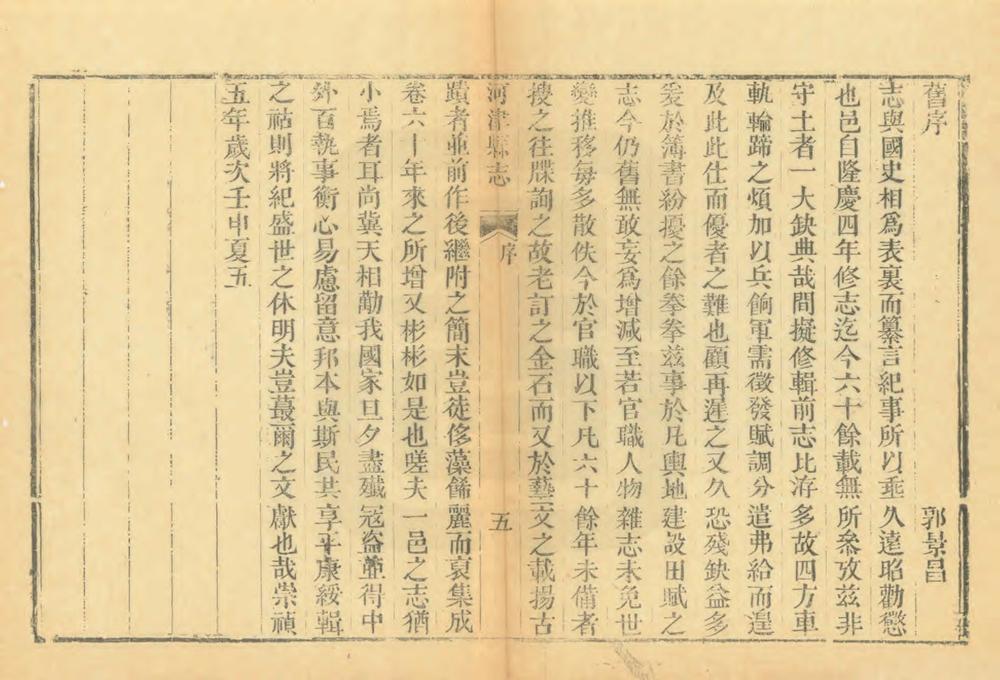 舊序　郭景昌
志與國史相爲表裏而纂言紀事所以垂久遠昭勸懲
也邑自隆慶四年修志迄今六十餘載無所叅攷茲非
守土者一大缺典哉間擬修輯前志比洊多故四方車
軌輪蹄之煩加以兵餉軍需徵發賦調分遣弗給而遑
及此此仕而優者之難也顧再遲之又久恐殘缺益多
爰於簿書紛擾之餘拳拳茲事於凡輿地建設田賦之
志今仍舊無敢妄爲增減至若官職人物雜志未免世
變推移每多散佚今於官職以下凡六十餘年未備者
搜之往牒詢之故老訂之金石而又於藝文之載揚古
河津縣志　序　五
蹟者並前作後繼附之簡末豈徒侈藻餙麗而裒集成
卷六十年來之所增又彬彬如是也嗟夫一邑之志猶
小焉者耳尚冀天相勷我國家旦夕盡殲冦盜並得中
外百執事衡心易慮留意邦本與斯民共享平康綏輯
之祜則將紀盛世之休明夫豈蕞爾之文獻也哉崇禎
五年歲次壬申夏五